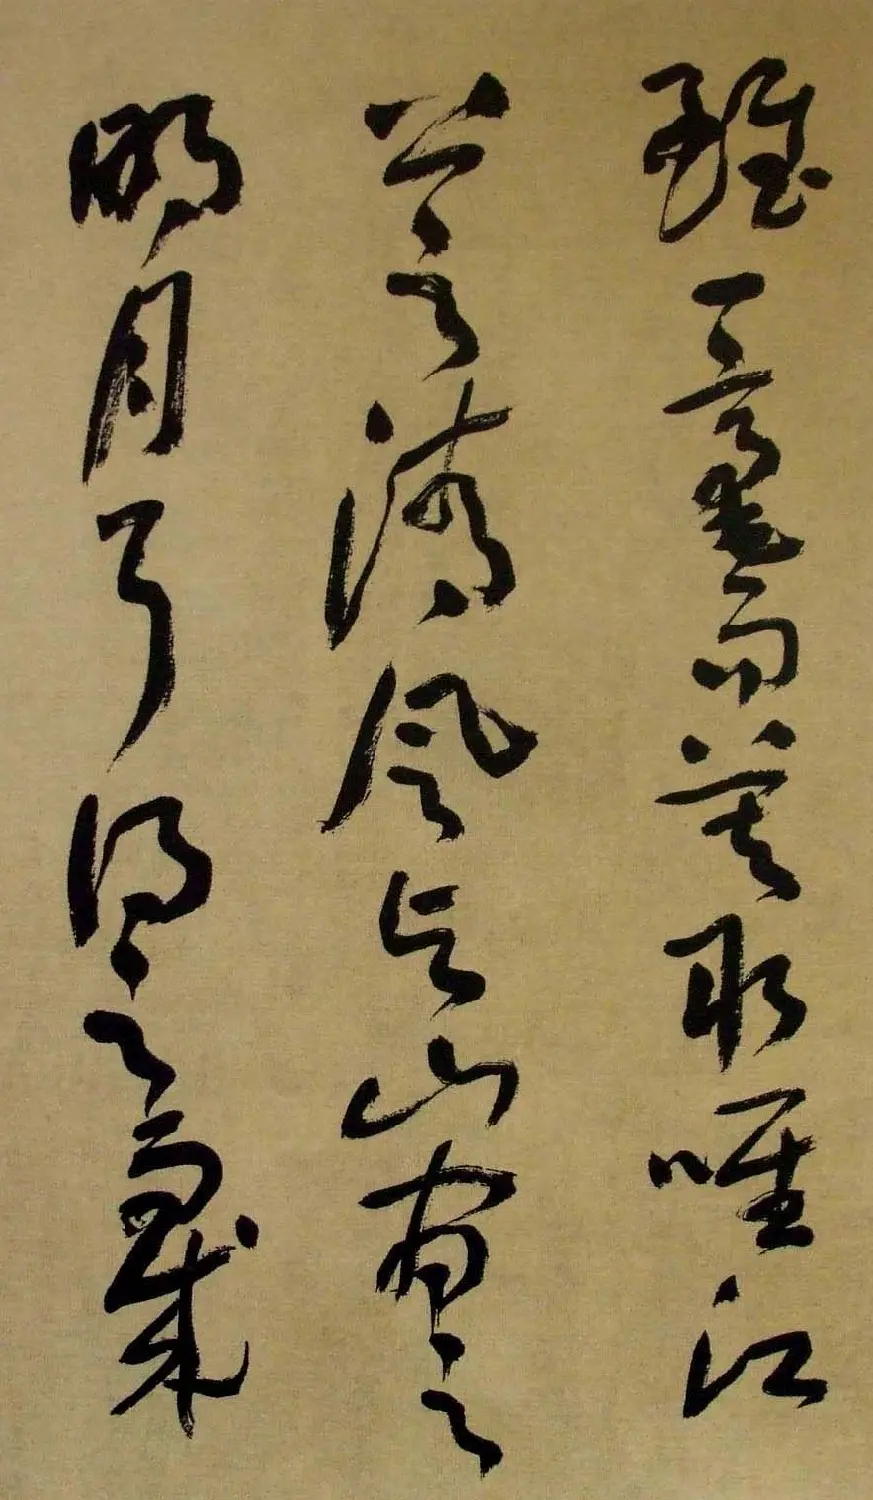 雖一毫而莫取唯江
上之清風與山間之
明月耳得之而成